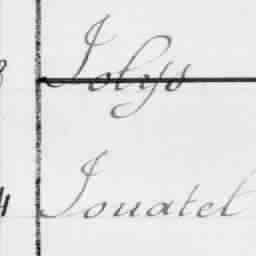 Jolys
Jouatel